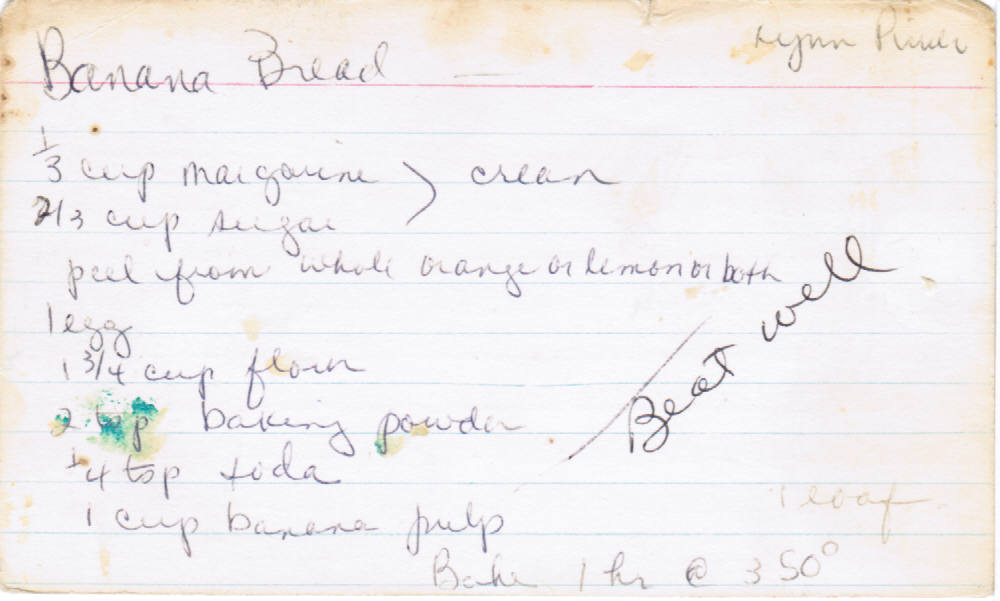 Lynn
Banana Bread —
1/3 cup margarine > cream
2/3 cup sugar
peel from whole orange or lemon or both
1 egg
1 3/4 cup flour
2 tsp baking powder
1/4 tsp soda
1 cup banana pulp
Beat well
1 loaf
Bake 1 hr @ 350°